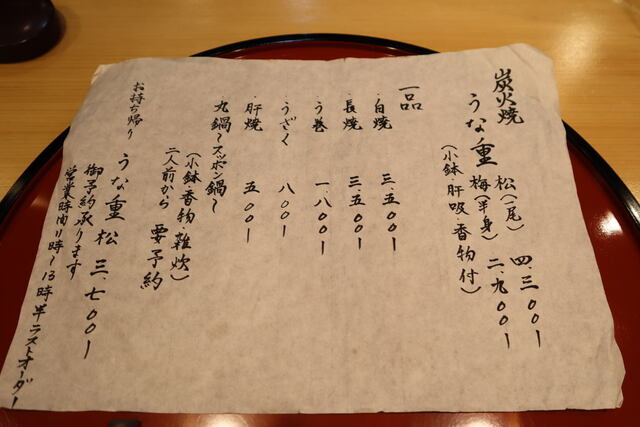 炭火焼
うな重 松(一尾) 四、三〇〇ー
梅(半身) 二、九〇〇ー
(小鉢・肝吸・香物付)
一品
・白焼 三、五〇〇ー
・長焼 三、五〇〇ー
・う巻 一、八〇〇ー
・うざく 八〇〇ー
・肝焼 五〇〇ー
・丸鍋〜スッポン鍋〜
(小鉢・香物・雑炊)
二人前から 要予約
お持ち帰り
うな重 松 三、七〇〇ー
御予約承ります
営業時間11時〜13時半ラストオーダー